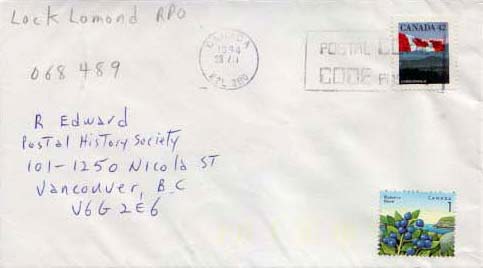 Lock Lomond RPO
068 489
CANADA
1994
POSTAL
CODE
CANADA 42
R Edward
Postal History Society
101-1250 Nicola ST
Vancouver, B.C
V6G 2E6
CANADA
1